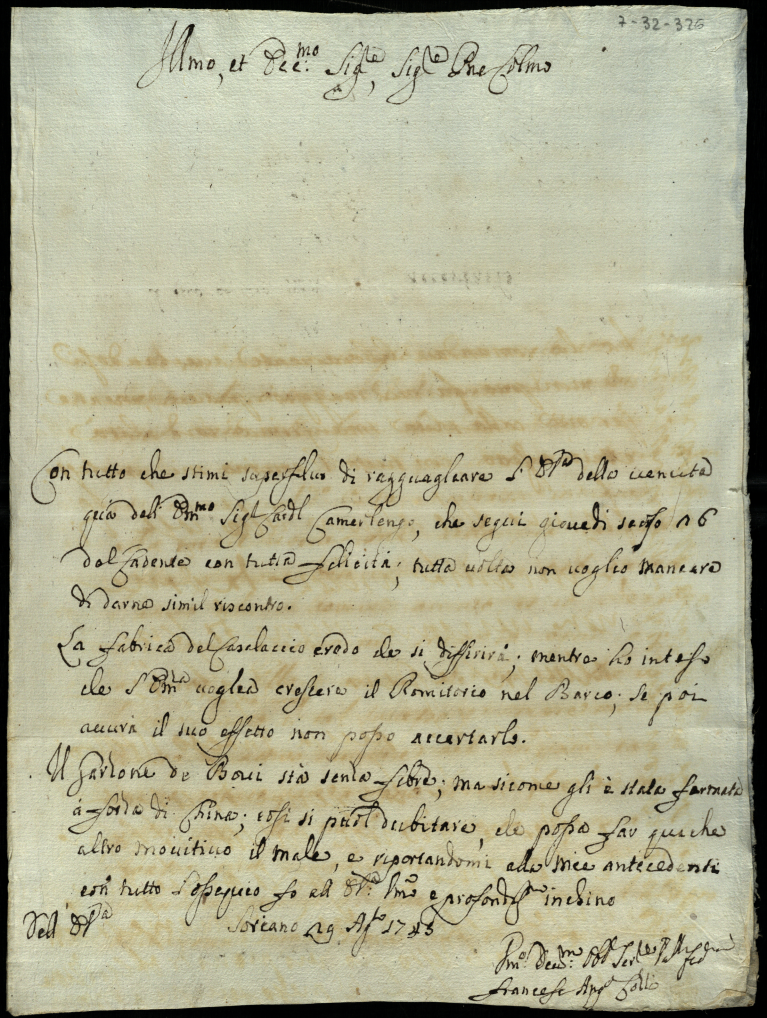 7-32-326
Illmo, et Ecc:mo Sigre, Sigre Pne Colmo
Con tutto che stimi superfluo di ragguagliare l' E.V. della venuta
quà dell' Emmo Sigr Cardl Camerlengo, che seguì giovedì scorso 26
del Cadente con tutta felicità; tutta volta non voglio mancare
di darne simil riscontro.
La fabrica del Casalaccio credo che si differirà; mentre hò inteso
che l' Emza voglia crescere il Romitorio nel Barco; se poi
averà il suo effetto non posso accertarlo.
Il Garzone de Bovi stà senza febre; ma sicome gli è stata fermata
à forza di China; così si puol dubitare, che possa far qualche
altro motivo il male, e riportandomi alle mie antecedenti
con tutto l'ossequio fo all' E.V. Umo e profondissmo inchino
Dell' E.V.
Soriano 29 Agto 174
Umo: Devmo: Obb Serre
Francesco Ang